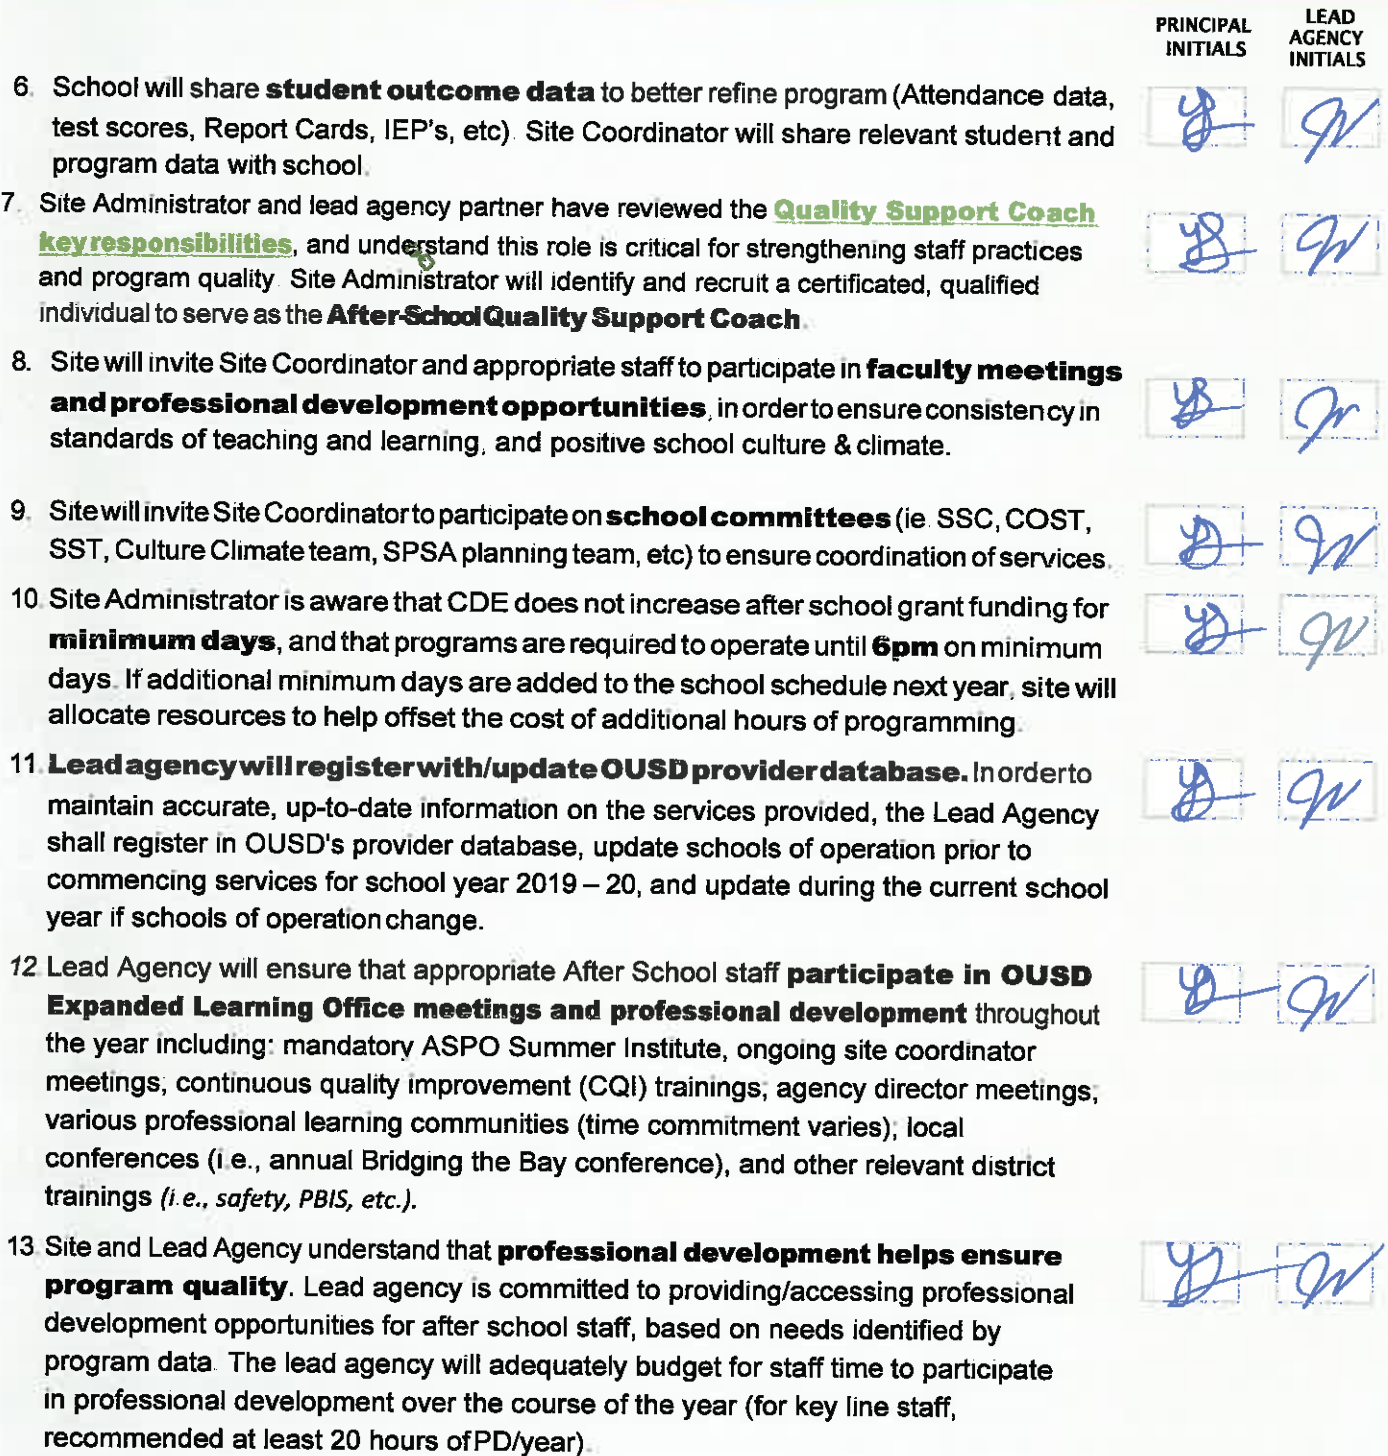 PRINCIPAL INITIALS
LEAD AGENCY INITIALS
6. School will share student outcome data to better refine program (Attendance data,
test scores, Report Cards, IEP's, etc). Site Coordinator will share relevant student and
program data with school.
7. Site Administrator and lead agency partner have reviewed the Quality Support Coach
key responsibilities, and understand this role is critical for strengthening staff practices
and program quality. Site Administrator will identify and recruit a certificated, qualified
individual to serve as the After-School Quality Support Coach.
8. Site will invite Site Coordinator and appropriate staff to participate in faculty meetings
and professional development opportunities, in order to ensure consistency in
standards of teaching and learning, and positive school culture & climate.
9. Site will invite Site Coordinator to participate on school committees (ie. SSC, COST,
SST, Culture Climate team, SPSA planning team, etc) to ensure coordination of services.
10. Site Administrator is aware that CDE does not increase after school grant funding for
minimum days, and that programs are required to operate until 6pm on minimum
days. If additional minimum days are added to the school schedule next year, site will
allocate resources to help offset the cost of additional hours of programming.
11. Lead agency will register with/update OUSD provider database. In order to
maintain accurate, up-to-date information on the services provided, the Lead Agency
shall register in OUSD's provider database, update schools of operation prior to
commencing services for school year 2019 – 20, and update during the current school
year if schools of operation change.
12. Lead Agency will ensure that appropriate After School staff participate in OUSD
Expanded Learning Office meetings and professional development throughout
the year including: mandatory ASPO Summer Institute, ongoing site coordinator
meetings; continuous quality improvement (CQI) trainings; agency director meetings;
various professional learning communities (time commitment varies); local
conferences (i.e., annual Bridging the Bay conference), and other relevant district
trainings (i.e., safety, PBIS, etc.).
13. Site and Lead Agency understand that professional development helps ensure
program quality. Lead agency is committed to providing/accessing professional
development opportunities for after school staff, based on needs identified by
program data. The lead agency will adequately budget for staff time to participate
in professional development over the course of the year (for key line staff,
recommended at least 20 hours of PD/year).